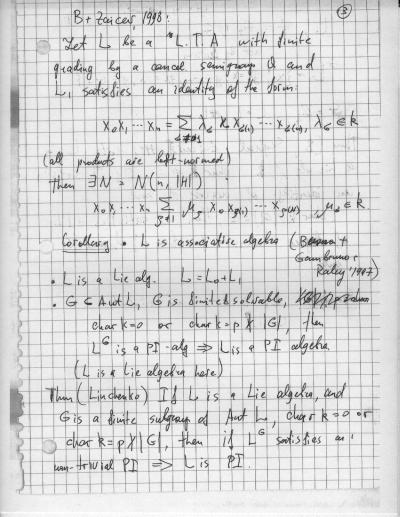 ③
B + Zaicev, 1998:
Let L be a "L.T.A with finite
grading by a cancel semigroup Q and
L₁ satisfies an identity of the form:
x₀x₁ ⋯ xₙ = ∑_{σ≠1} λ_σ x₀ x_{σ(1)} ⋯ x_{σ(n)}, λ_σ ∈ k
(all products are left-normed)
then ∃N = N(n, |H|)
x₀x₁ ⋯ xₙ ∑_{ρ≠1} μ_ρ x₀ x_{ρ(1)} ⋯ x_{ρ(N)}, μ_ρ ∈ k
Corollary • L is associative algebra (+
Riley '1997)
• L is a Lie alg. L = L₀ + L₁
• G ⊂ Aut L, G is finite & solvable,
char k = 0 or char k = p ∤ |G|, then
L^G is a PI-alg ⟹ L is a PI algebra
(L is a Lie algebra here)
Thm (Linchenko) If L is a Lie algebra, and
G is a finite subgroup of Aut L, char k = 0 or
char k = p ∤ |G|, then if L^G satisfies an
non-trivial PI ⟹ L is PI.